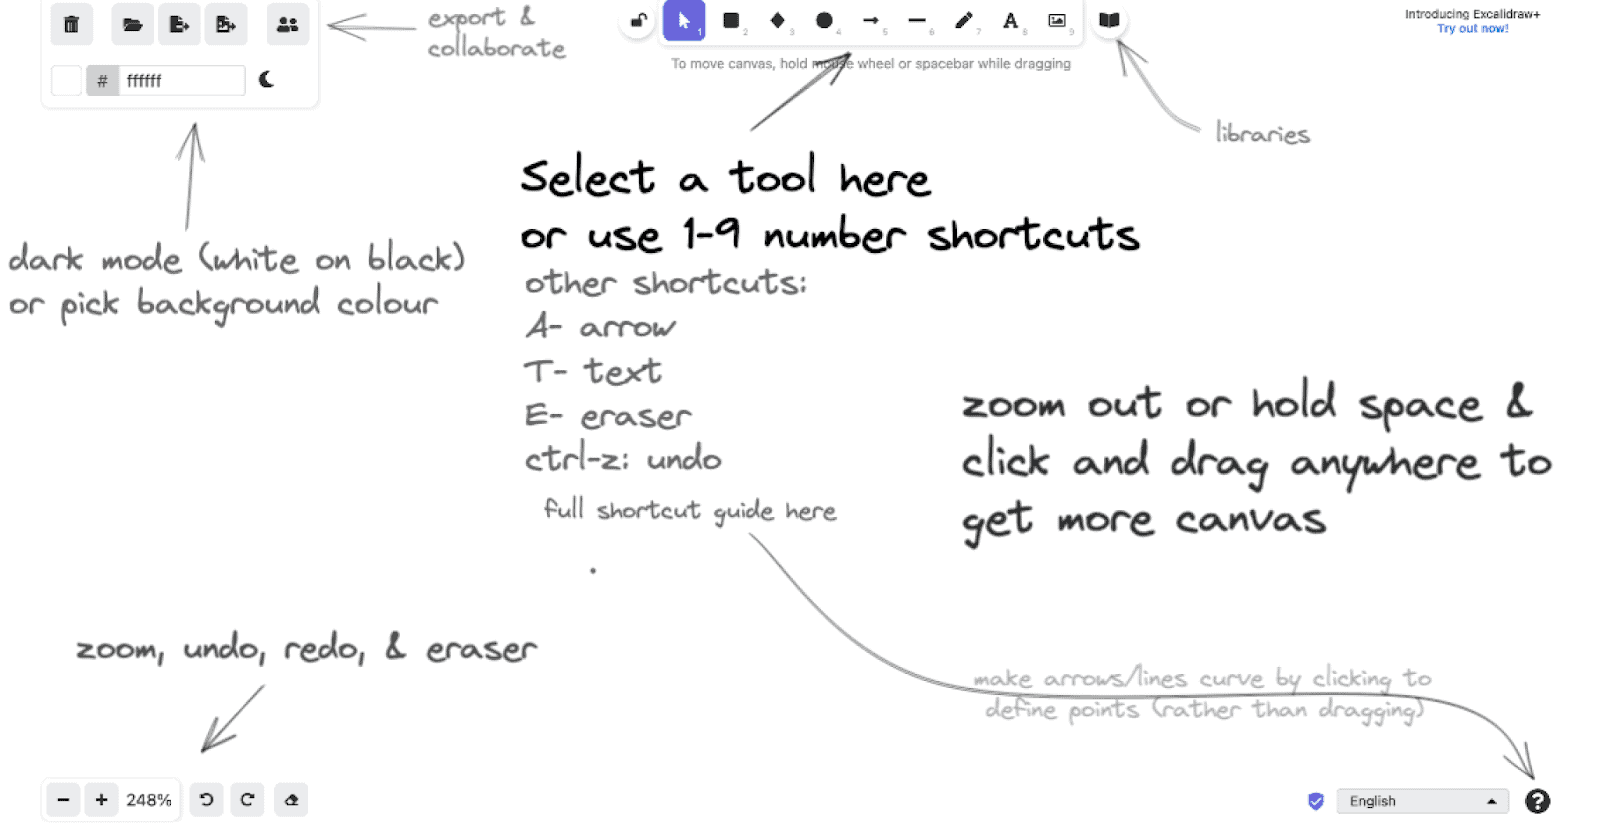 export &
collaborate
1
2
3
4
5
6
7
A
8
9
Introducing Excalidraw+
Try out now!
To move canvas, hold mouse wheel or spacebar while dragging
# ffffff
libraries
Select a tool here
or use 1-9 number shortcuts
dark mode (white on black)
or pick background colour
other shortcuts:
A- arrow
T- text
E- eraser
ctrl-z: undo
full shortcut guide here
zoom out or hold space &
click and drag anywhere to
get more canvas
zoom, undo, redo, & eraser
make arrows/lines curve by clicking to
define points (rather than dragging)
- + 248%
English
?